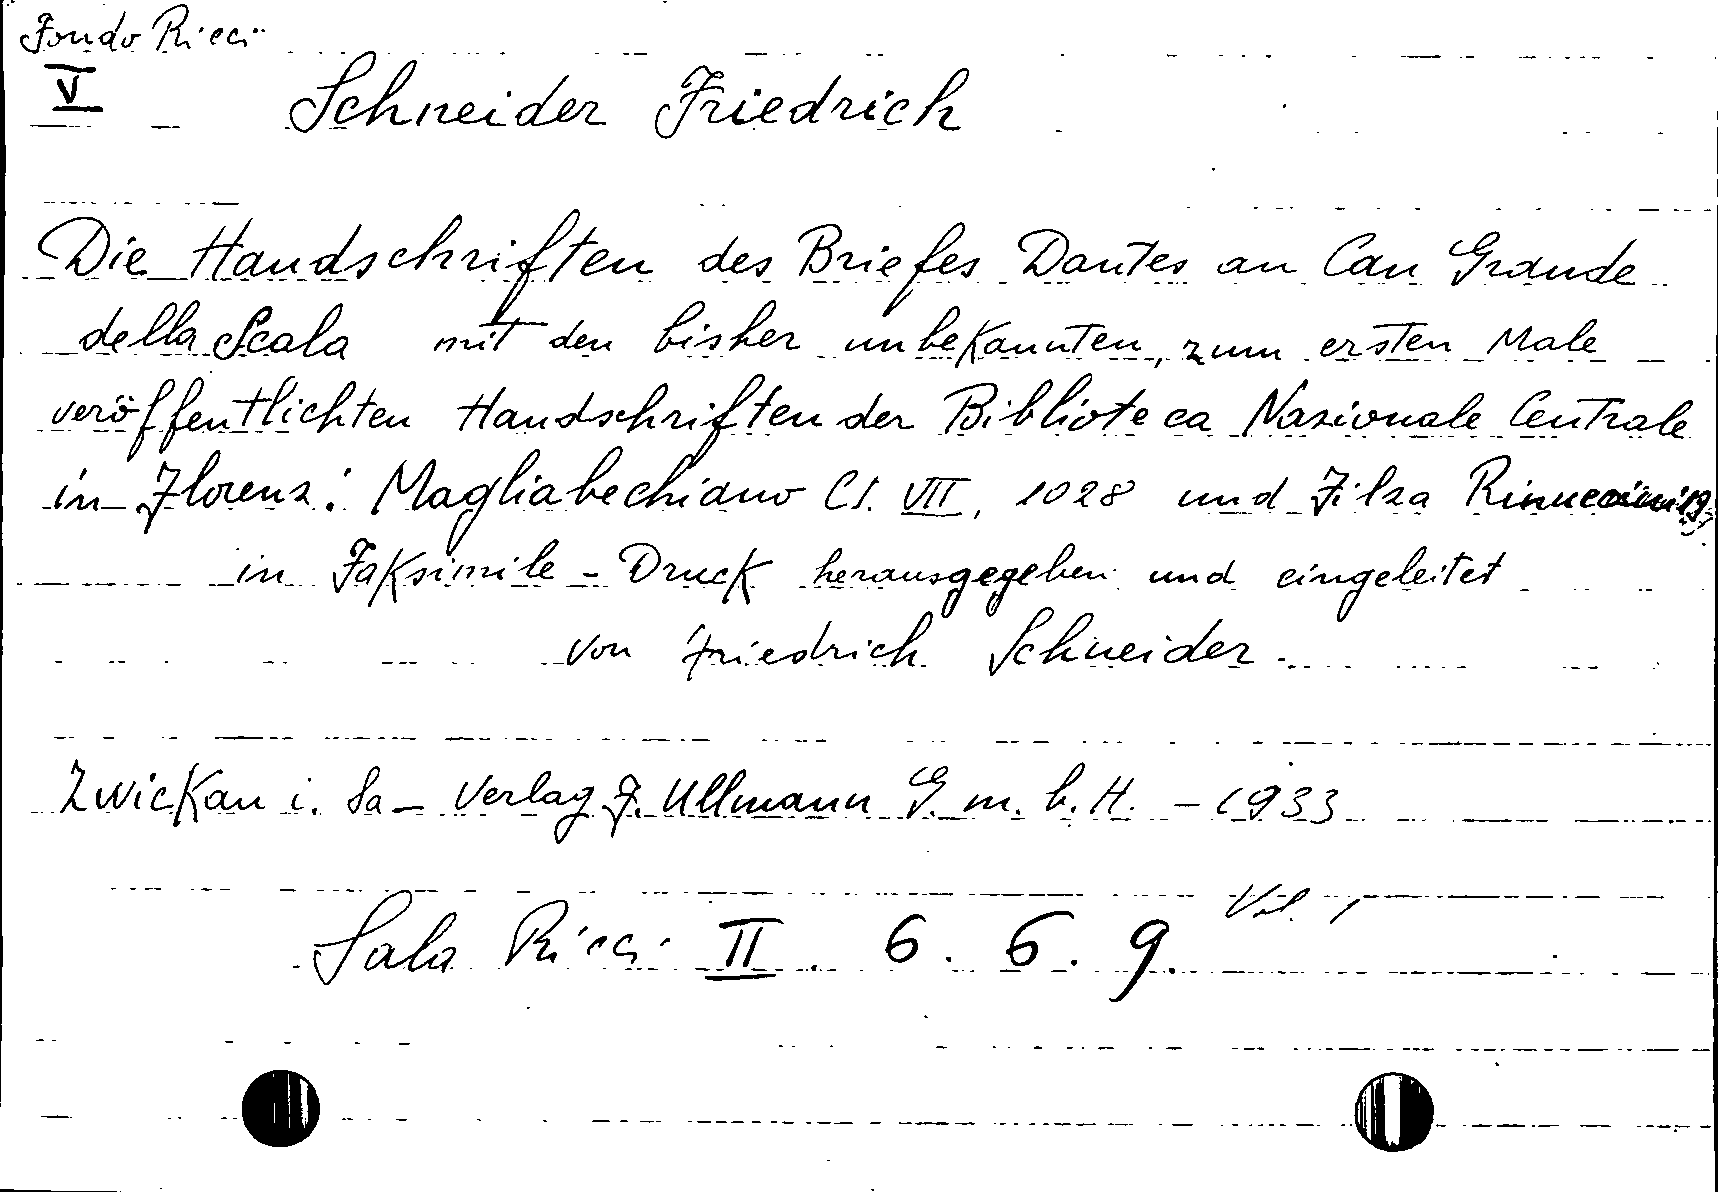 Fondo Ricci
V
Schneider Friedrich
Die Handschriften des Briefes Dantes an Can Grande
della Scala mit den bisher unbekannten, zum ersten Male
veröffentlichten Handschriften der Biblioteca Nazionale Centrale
in Florenz: Magliabechiano Cl. VII, 1028 und Filza Rinuccini 19,
in Faksimile-Druck herausgegeben und eingeleitet
von Friedrich Schneider.
Zwickau i. Sa - Verlag J. Ullmann G. m. b. H. - 1933
Vol. 1
Sala Ricci II. 6. 6. 9.